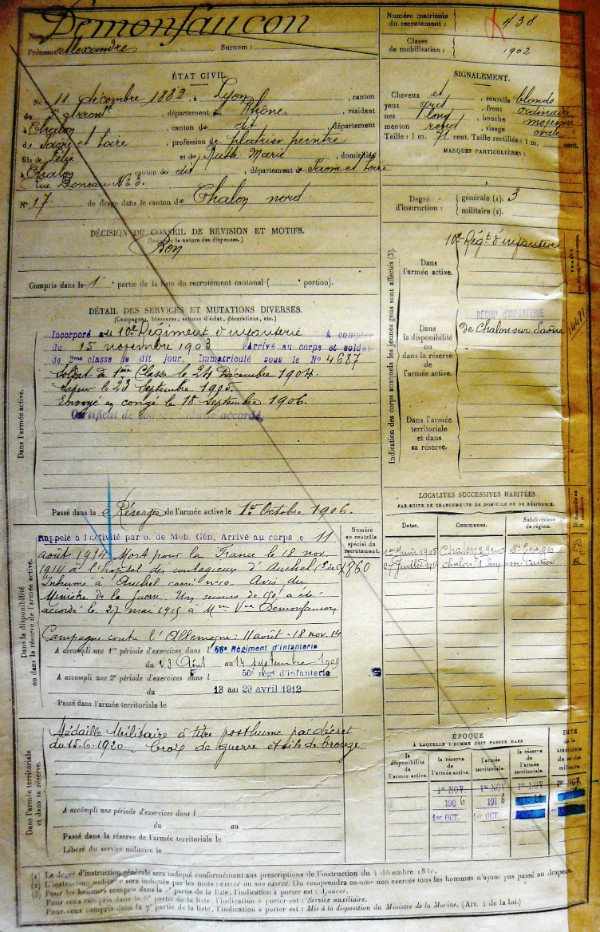 Demonfaucon
Numéro matricule du recrutement : 438
Prénoms : Alexandre Surnom :
Classe de mobilisation : 1902
ÉTAT CIVIL.
Né le 11 décembre 1882, à Lyon, canton
de arront, département du Rhône, résidant
à Chalon, canton de dit, département
de Saône et Loire, profession de plâtrier peintre
fils de Félix et de Marie, domiciliés
à Chalon, canton de dit, département de Saône et Loire
rue No 8.
No 17 de tirage dans le canton de Chalon nord
SIGNALEMENT.
Cheveux et sourcils blonds
yeux gris, front ordinaire
nez long, bouche moyenne
menton rond, visage ovale
Taille : 1 m. 71 cent. Taille rectifiée : 1 m. cent.
MARQUES PARTICULIÈRES :
Degré d'instruction : générale (1). 3
militaire (2).
DÉCISION DU CONSEIL DE REVISION ET MOTIFS.
Bon
Compris dans la 1re partie de la liste du recrutement cantonal ( portion).
Indication des corps auxquels les jeunes gens sont affectés (3).
Dans l'armée active.
10e Régt d'infanterie
Dans la disponibilité ou dans la réserve de l'armée active.
de Chalon sur Saône
Dans l'armée territoriale et dans sa réserve.
DÉTAIL DES SERVICES ET MUTATIONS DIVERSES.
(Campagnes, blessures, actions d'éclat, décorations, etc.)
Dans l'armée active.
Incorporé au 10e Régiment d'infanterie A compter
du 15 novembre 1903 Arrivé au corps et soldat
de 2me classe le dit jour. Immatriculé sous le No 4887
Soldat de 1ère Classe le 24 Décembre 1904.
le 23 Septembre 1905.
Envoyé en congé le 18 Septembre 1906.
Certificat de bonne conduite accordé.
Passé dans la Réserve de l'armée active le 1er Octobre 1906.
LOCALITÉS SUCCESSIVES HABITÉES
PAR SUITE DE CHANGEMENTS DE DOMICILE OU DE RÉSIDENCE.
Dates. Communes. Subdivisions de région.
Dans la disponibilité ou dans la réserve de l'armée active.
Numéro au contrôle spécial du recrutement.
Rappelé à l'activité par o. de Mob. Gén. Arrivé au corps le 11
août 1914 Mort pour la France le 18 nov.
1914 à l'hôpital des contagieux d'Auchel
1860
Inhumé à Auchel Avis du
Ministre de la Guerre. Un secours de a été
accordé le 27 mai 1915 à Mme Vve Demonfaucon
Campagne contre l'Allemagne : 11 août - 18 nov. 14
A accompli une 1re période d'exercices dans l 56e Régiment d'infanterie
du 23 Août au 14 septembre 1909
A accompli une 2e période d'exercices dans l 56e Rég. d'infanterie
du 13 au 29 avril 1912
Passé dans l'armée territoriale le
Dans l'armée territoriale et dans sa réserve.
Médaille Militaire à titre posthume par décret
du 1920. Croix de guerre étoile de bronze
A accompli une période d'exercices dans l
du au
Passé dans la réserve de l'armée territoriale le
Libéré du service militaire le
ÉPOQUE
À LAQUELLE L'HOMME DOIT PASSER DANS
DATE de la LIBÉRATION du service militaire.
la disponibilité de l'armée active. la réserve de l'armée active. l'armée territoriale. la réserve de l'armée territoriale.
1er NOV. 1er NOV. 1er NOV. 1er NOV.
1er OCT. 1er OCT.
(1) Le degré d'instruction générale sera indiqué conformément aux prescriptions de l'instruction du
(2) L'instruction militaire sera indiquée par les mots : exercé ou non exercé. On comprendra comme non exercés tous les hommes n'ayant pas passé au drapeau.
(3) Pour les hommes compris dans la partie de la liste, l'indication à porter est :
Pour ceux compris dans la partie de la liste, l'indication à porter est : Service auxiliaire.
Pour ceux compris dans la 7e partie de la liste, l'indication à porter est : Mis à la disposition du Ministre de la Marine. (Art. 4 de la loi.)